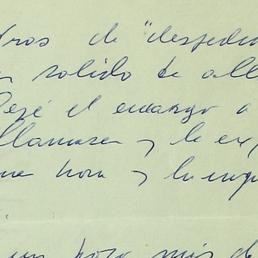 tros de "despedi
n salido de all
Dejé el encargo a
llamasen y le ex
una hora y luego
un poco más de